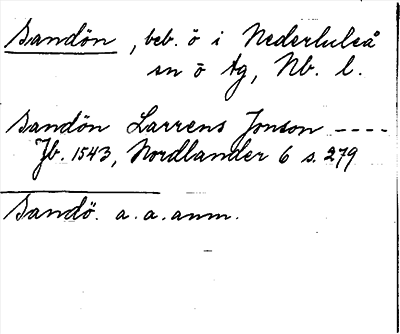 Sandön, beb. ö i Nederluleå
sn ö tg, Nb. l.
Sandön Larrens Jonson ----
Jb. 1543, Nordlander 6 s. 279
Sandö. a. a. anm.